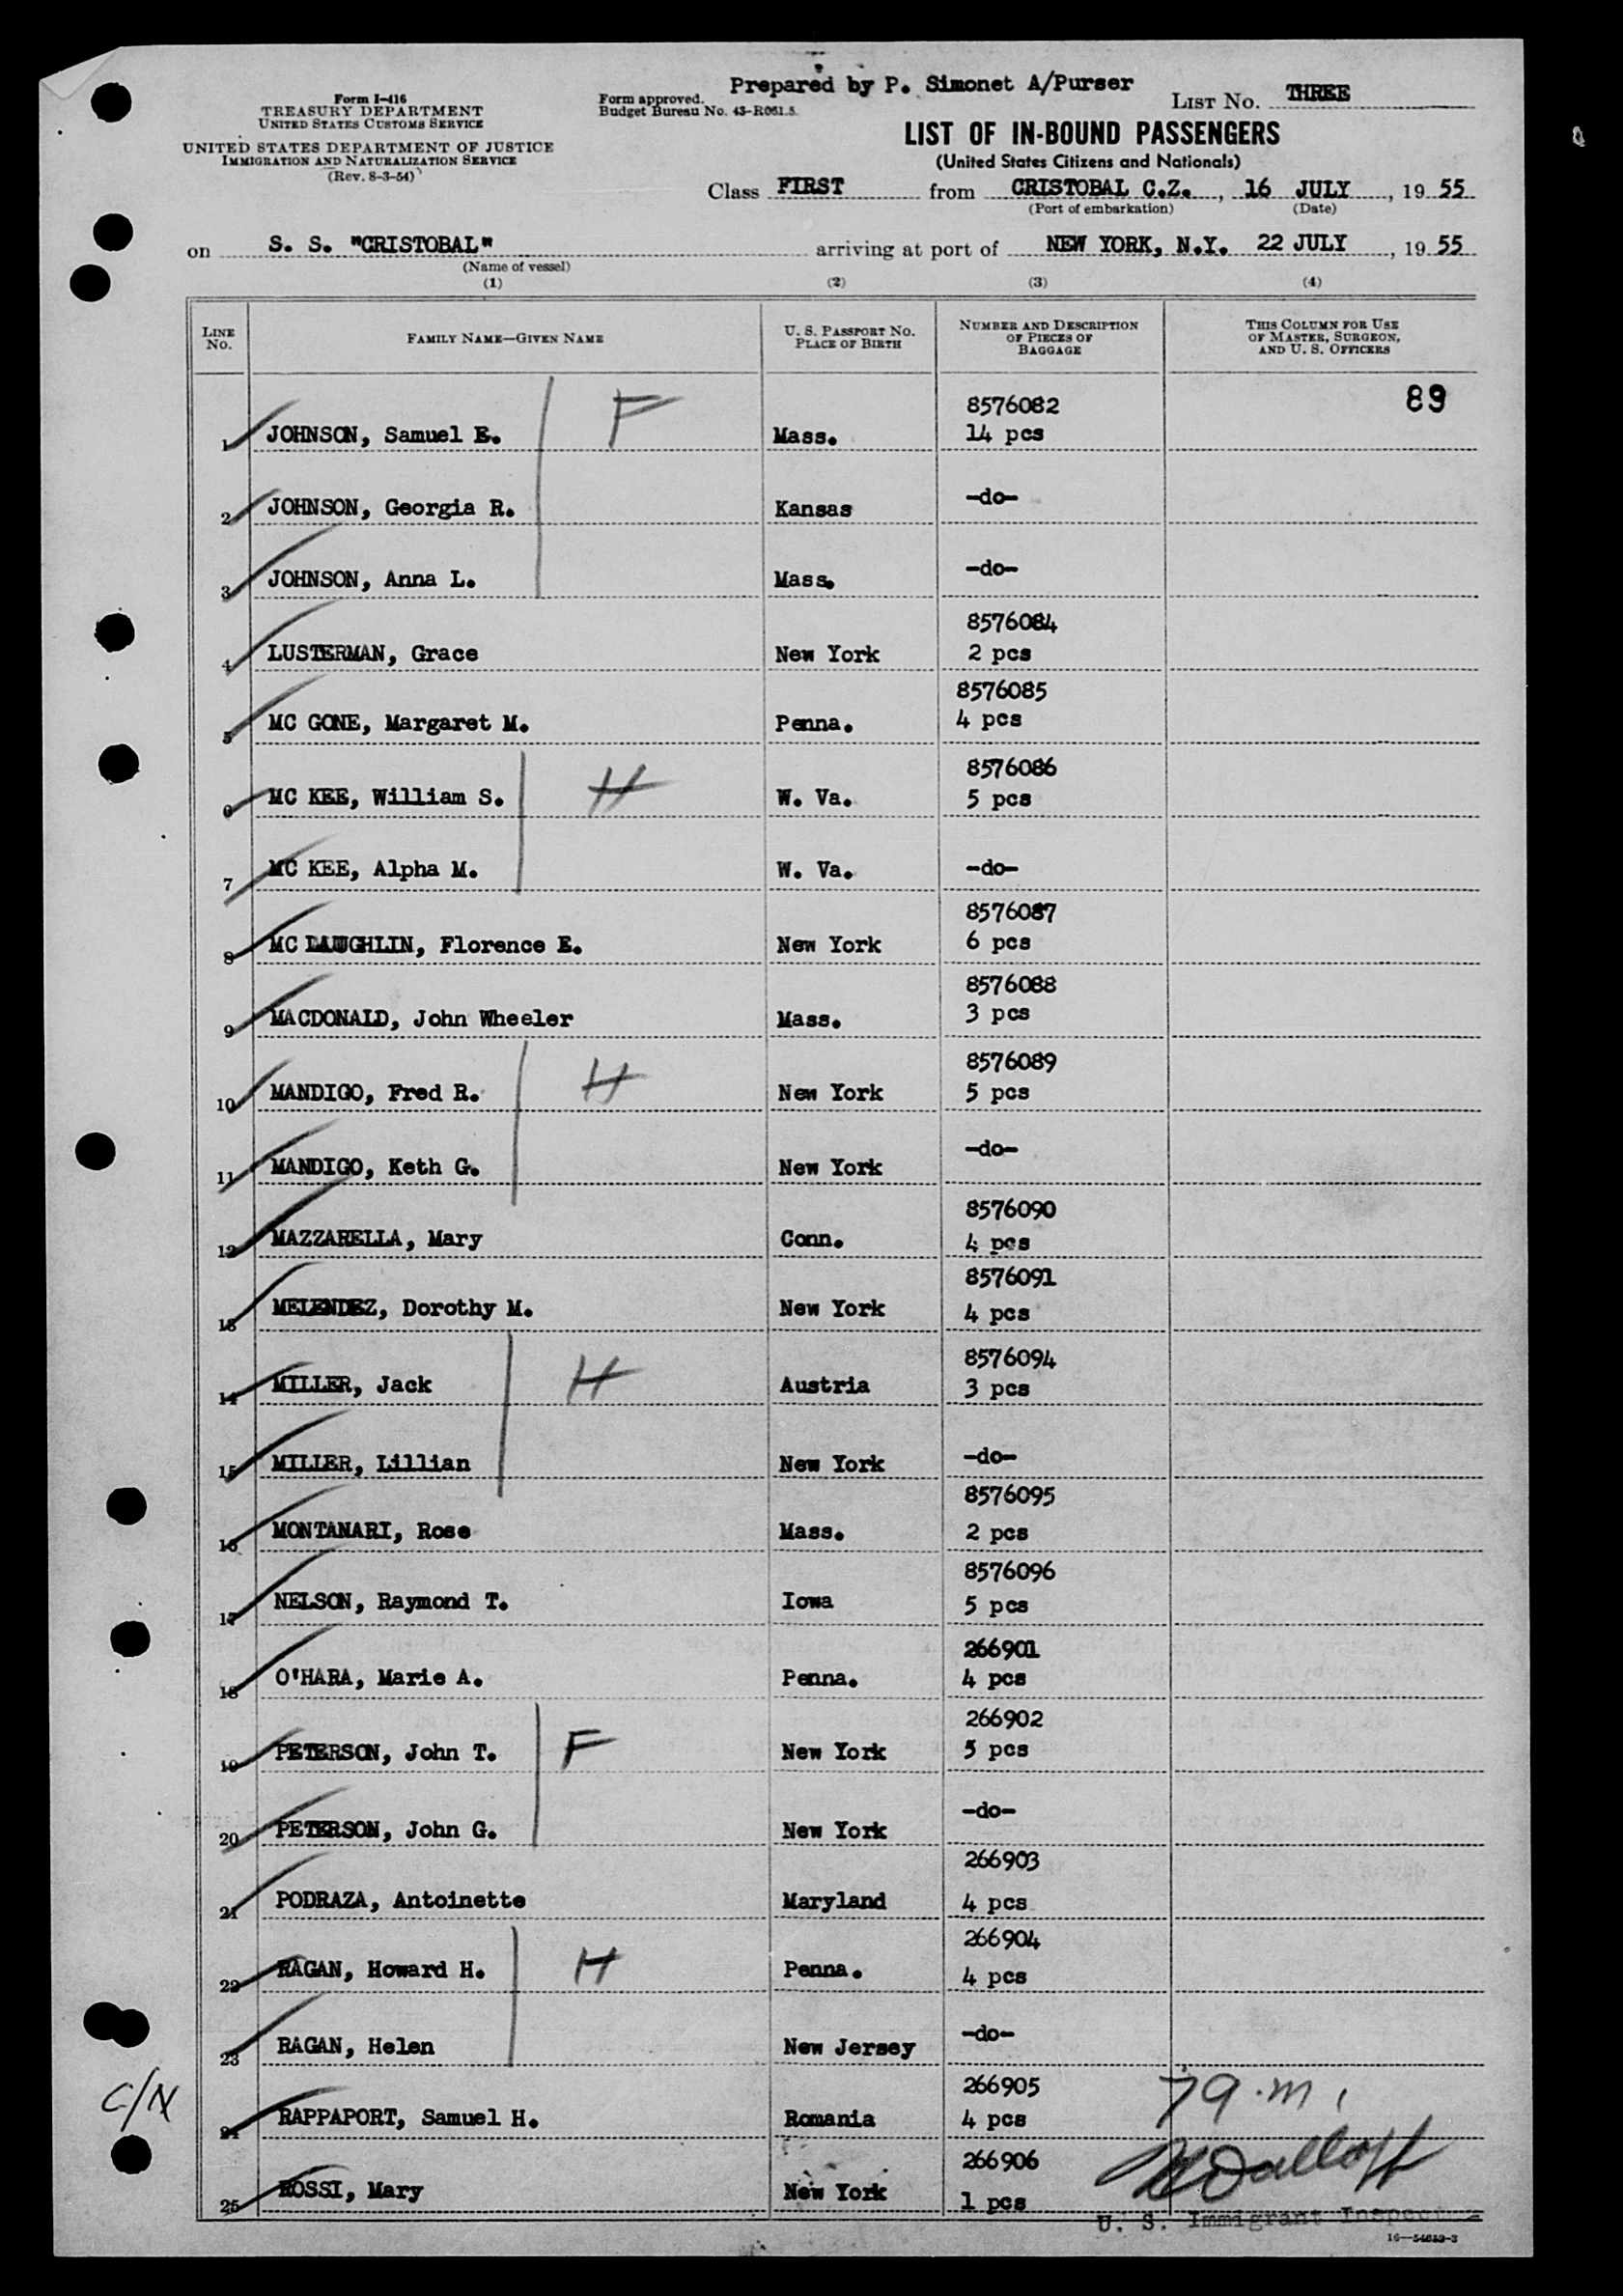 Prepared by P. Simonet A/Purser
Form I-416
TREASURY DEPARTMENT
UNITED STATES CUSTOMS SERVICE
UNITED STATES DEPARTMENT OF JUSTICE
IMMIGRATION AND NATURALIZATION SERVICE
(Rev. 8-3-54)
Form approved.
Budget Bureau No. 43-R061.5.
LIST NO. THREE
LIST OF IN-BOUND PASSENGERS
(United States Citizens and Nationals)
Class FIRST from CRISTOBAL C.Z., 16 JULY, 19 55
(Port of embarkation) (Date)
on S. S. "CRISTOBAL" arriving at port of NEW YORK, N.Y. 22 JULY, 19 55
(Name of vessel)
(1) (2) (3) (4)
LINE NO. FAMILY NAME—GIVEN NAME U. S. PASSPORT NO. PLACE OF BIRTH NUMBER AND DESCRIPTION OF PIECES OF BAGGAGE THIS COLUMN FOR USE OF MASTER, SURGEON, AND U. S. OFFICERS
8576082 89
1 JOHNSON, Samuel E. F Mass. 14 pcs
2 JOHNSON, Georgia R. Kansas -do-
3 JOHNSON, Anna L. Mass. -do-
8576084
4 LUSTERMAN, Grace New York 2 pcs
8576085
5 MC GONE, Margaret M. Penna. 4 pcs
8576086
6 MC KEE, William S. H W. Va. 5 pcs
7 MC KEE, Alpha M. W. Va. -do-
8576087
8 MC LAUGHLIN, Florence E. New York 6 pcs
8576088
9 MACDONALD, John Wheeler Mass. 3 pcs
8576089
10 MANDIGO, Fred R. H New York 5 pcs
11 MANDIGO, Keth G. New York -do-
8576090
12 MAZZARELLA, Mary Conn. 4 pcs
8576091
13 MELENDEZ, Dorothy M. New York 4 pcs
8576094
14 MILLER, Jack H Austria 3 pcs
15 MILLER, Lillian New York -do-
8576095
16 MONTANARI, Rose Mass. 2 pcs
8576096
17 NELSON, Raymond T. Iowa 5 pcs
266901
18 O'HARA, Marie A. Penna. 4 pcs
266902
19 PETERSON, John T. F New York 5 pcs
20 PETERSON, John G. New York -do-
266903
21 PODRAZA, Antoinette Maryland 4 pcs
266904
22 RAGAN, Howard H. H Penna. 4 pcs
23 RAGAN, Helen New Jersey -do-
C/N 266905
24 RAPPAPORT, Samuel H. Romania 4 pcs
266906
25 ROSSI, Mary New York 1 pcs
U. S. Immigrant Inspect